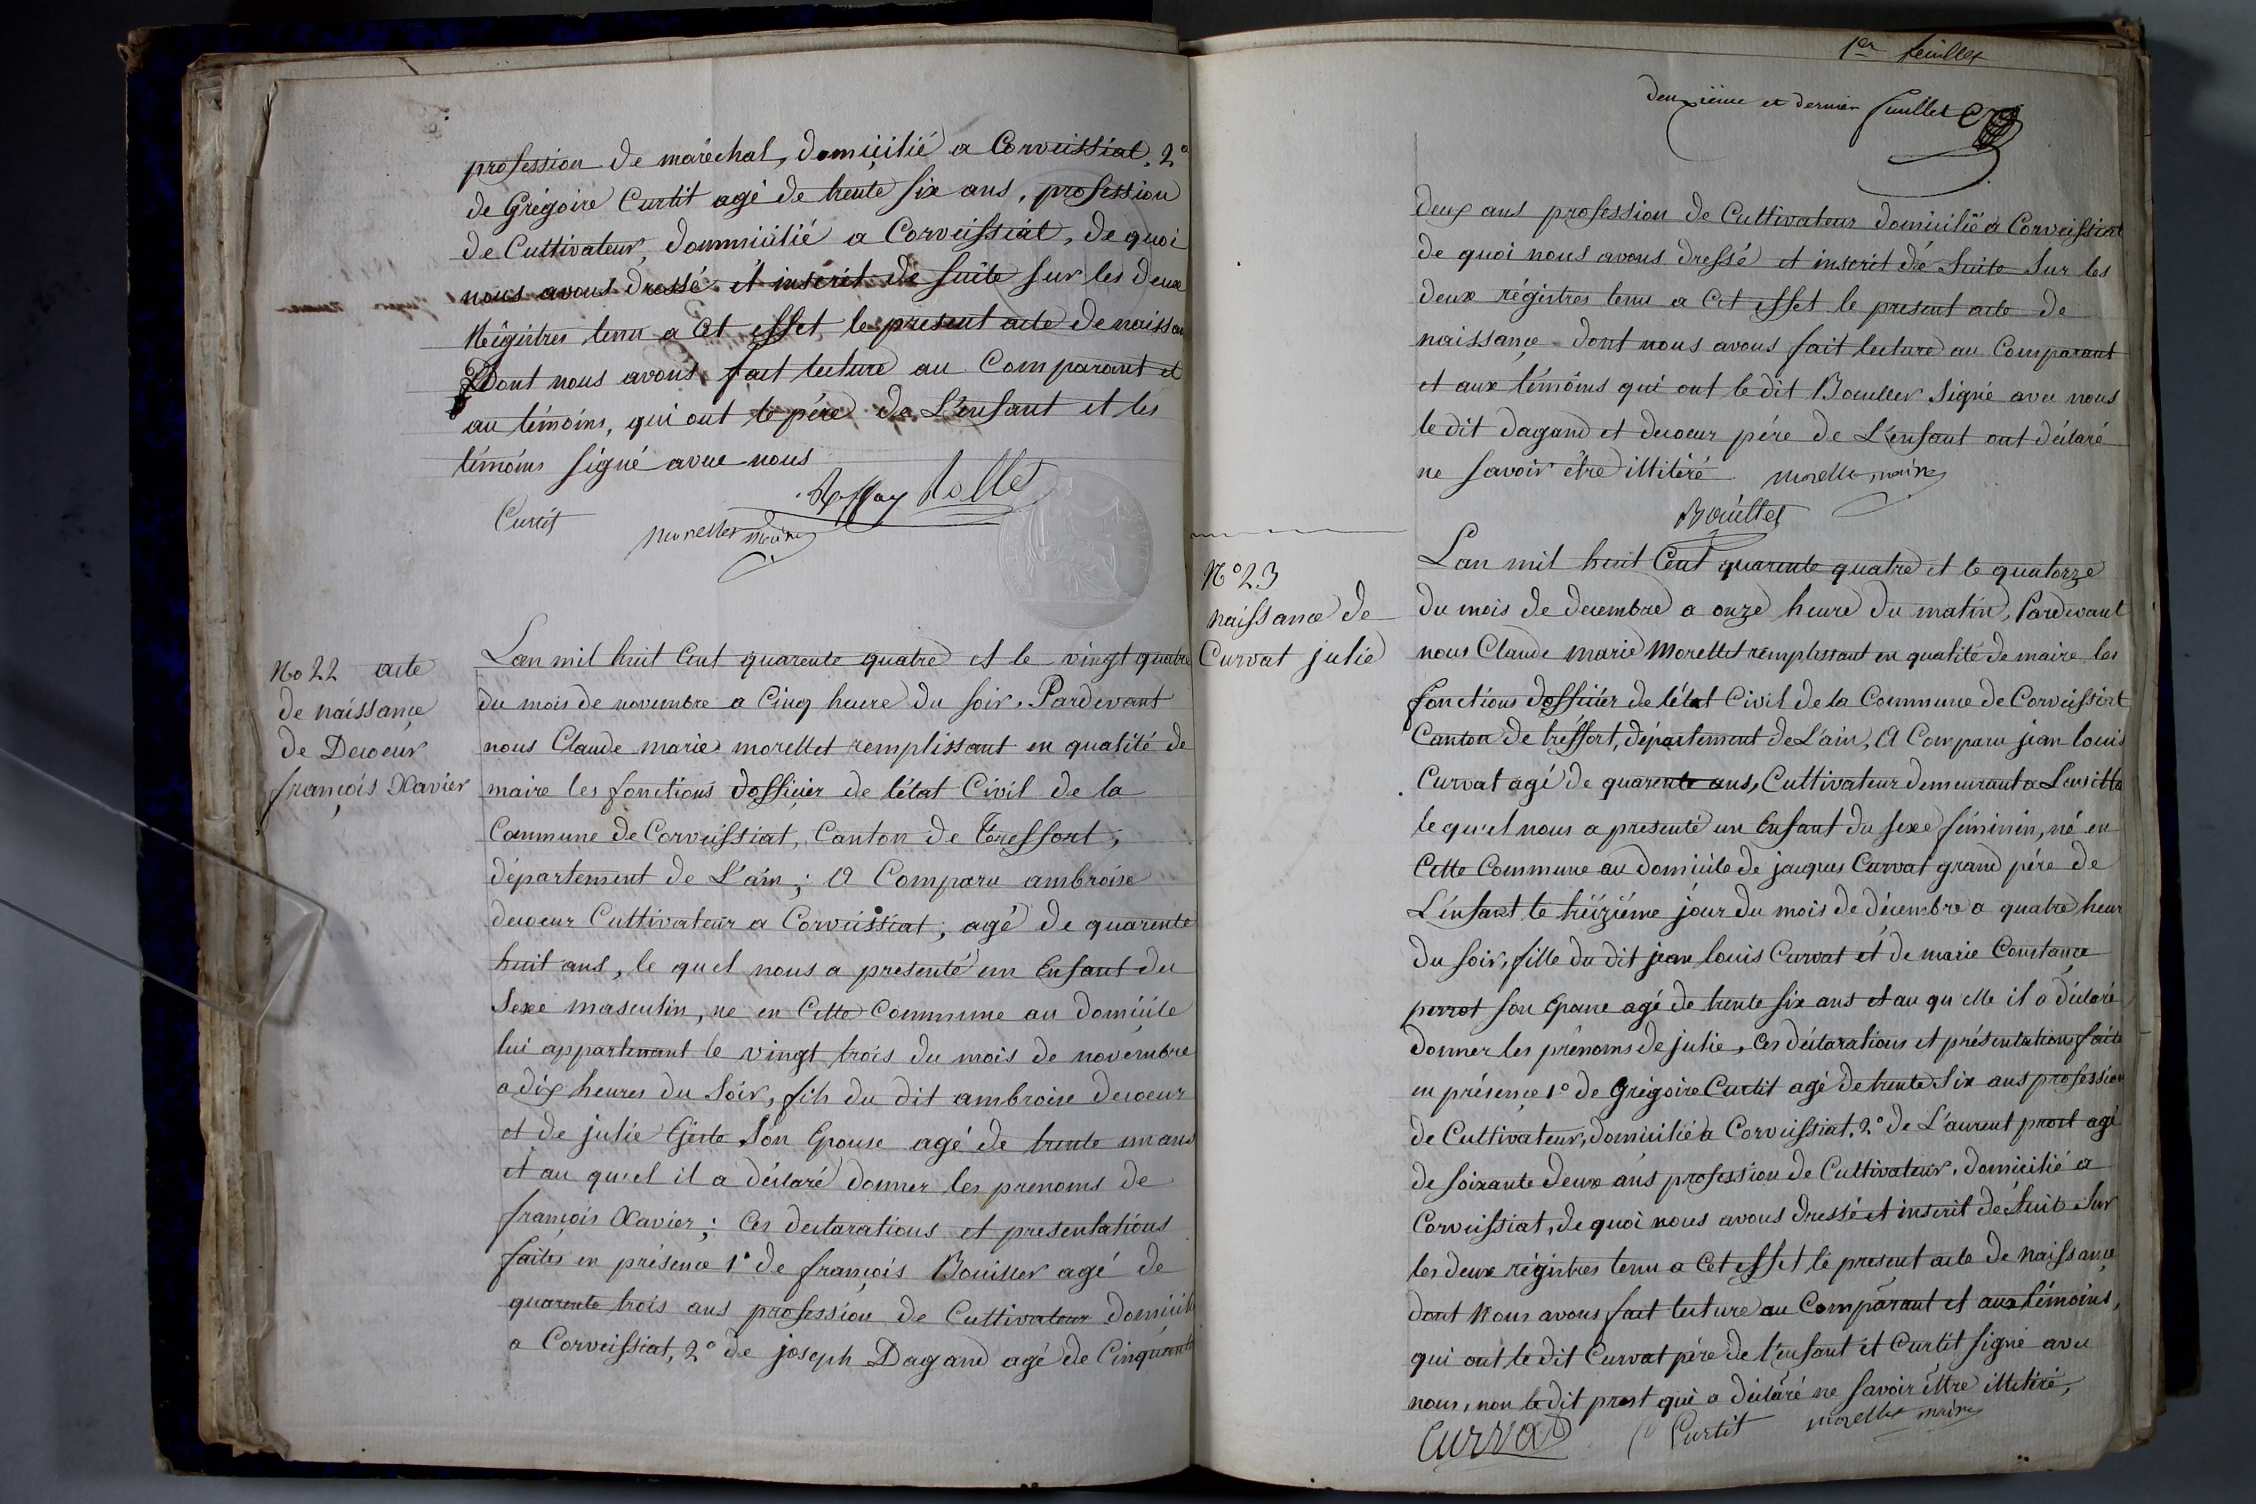 profession de maréchal, domicilié a Corveissiat, 2°
de Grégoire Curtit agé de trente six ans, profession
de Cultivateur, dommicilié a Corveissiat, de quoi
nous avons dressé et inscrit de suite sur les deux
Régistres tenu a Cet effet le present acte de naissan
Dont nous avons fait lecture au Comparant et
au témoins, qui ont le pére de L'enfant et les
témoins signé avec nous
Curtit
morellet maire
No 22 acte
de naissance
de Decoeur
françois Xavier
Lan mil huit Cent quarente quatre et le vingt quatre
du mois de novembre a Cinq heure du soir, Pardevant
nous Claude marie morellet remplissant en qualité de
maire les fonctions dofficier de létat Civil de la
Commune de Corveissiat, Canton de Tréffort,
département de L'ain; A Comparu ambroise
decoeur Cultivateur a Corveissiat; agé de quarente
huit ans, le quel nous a presenté un Enfant du
Sexe masculin, ne en Cette Commune au domicile
lui appartenant le vingt trois du mois de novembre
a dix heures du Soir, fils du dit ambroise decoeur
et de julie son Epouse agé de trente un ans
et au quel il a déclaré donner les prenoms de
françois Xavier; Ces declarations et presentations
faites en présence 1° de françois Bouiller agé de
quarente trois ans profession de Cultivateur domicile
a Corveissiat, 2° de joseph Dagand agé de Cinquante
1er feuillet
deuxième et dernier feuillet
deux ans profession de Cultivateur domicilié a Corveissiat
de quoi nous avons dressé et inscrit dé Suite Sur les
deux régistres tenu a Cet effet le present acte de
naissance dont nous avons fait lecture au Comparant
et aux témoins qui ont le dit Bouiller Signé avec nous
le dit dagand et decoeur pére de L'enfant ont déclaré
ne savoir être illitéré morellet maire
Bouillet
N° 23
naissance de
Curvat julie
Lan mil huit Cent quarente quatre et le quatorze
du mois de decembre a onze heure du matin, Pardevant
nous Claude marie Morellet remplissant en qualité de maire les
fonctions dofficier de létat Civil de la Commune de Corveissiat
Canton de tréffort, département de L'ain, A Comparu jean louis
Curvat agé de quarente ans, Cultivateur demeurant a
le quel nous a presenté un Enfant du sexe féminin, né en
Cette Commune au domicile de jacques Curvat grand pére de
L'enfant le treiziéme jour du mois de décembre a quatre heur
du soir, fille du dit jean louis Curvat et de marie Constance
perrot son Epouse agé de trente six ans et au qu'elle il a déclaré
donner les prénoms de julie, Ces déclarations et présentations faite
en présence 1° de Grégoire Curtit agé de trente Six ans profession
de Cultivateur, domicilié a Corveissiat, 2° de L'aurent prost agé
de soixante deux ans profession de Cultivateur, domicilié a
Corveissiat, de quoi nous avons dressé et inscrit de Suite Sur
les deux régistres tenu a Cet effet le present acte de naissance
dont Nous avons fait lecture au Comparant et aux témoins,
qui ont le dit Curvat pére de l'enfant et Curtit signé avec
nous, non le dit prost qui a déclaré ne savoir être illitéré,
Curvat
Curtit
morellet maire